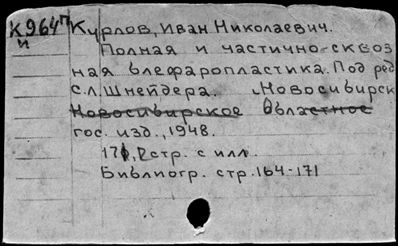 К964п Курлов, Иван Николаевич.
и Полная и частично-сквоз
ная блефаропластика. Под ред
С.Л. Шнейдера. Новосибирск
Новосибирское областное
гос. изд., 1948.
стр. с илл.
Библиогр. стр. 164-171